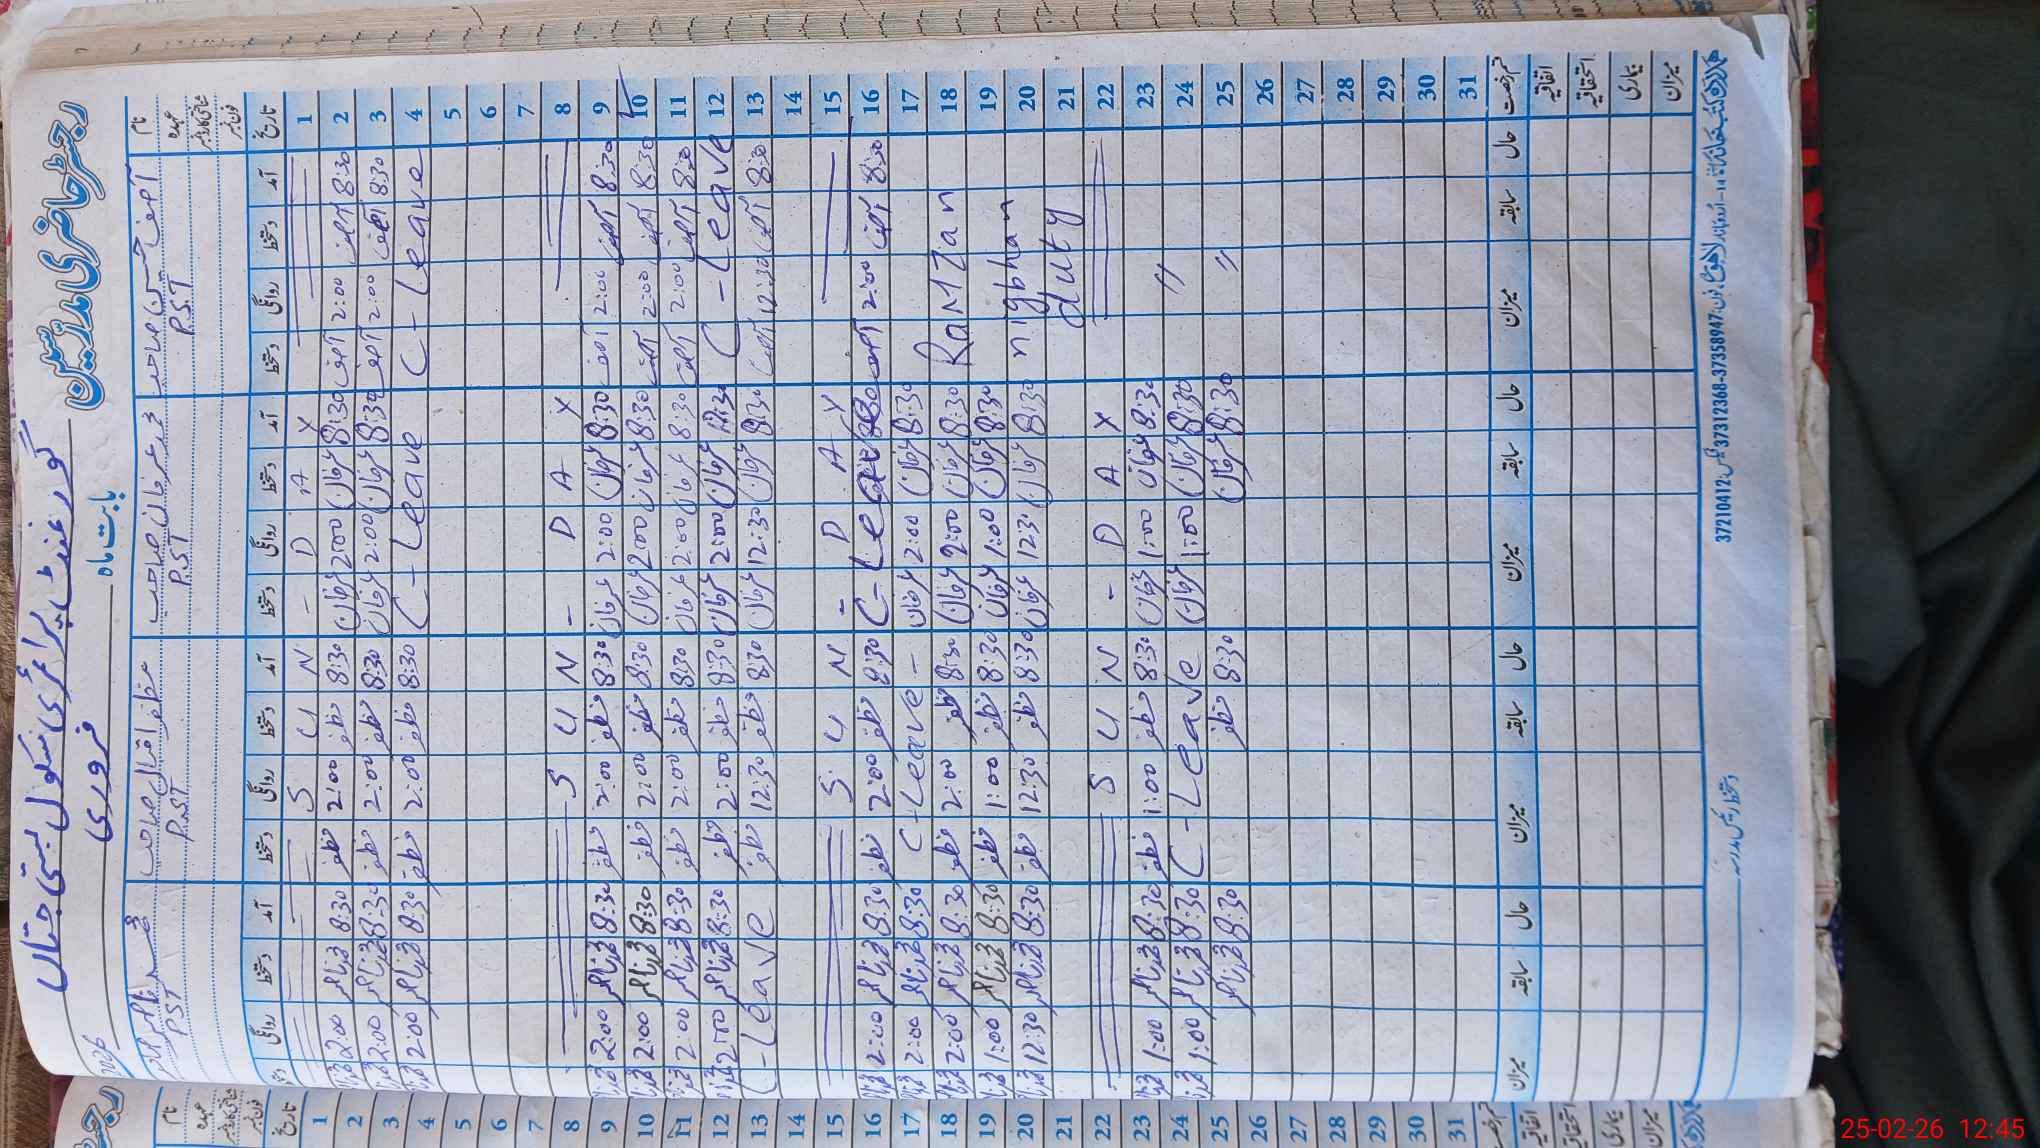 رجسٹر حاضری مدرّسین
گورنمنٹ پرائمری سکول بستی جتالہ
بابت ماہ فروری 2026
نام آصف حسن صاحب محمد عرفان صاحب مظفر اقبال صاحب
عہدہ PST PST PST PST
شناختی کارڈ نمبر
فون نمبر
تاریخ آمد دستخط روانگی دستخط آمد دستخط روانگی دستخط آمد دستخط روانگی دستخط آمد دستخط روانگی
1 X A D - N U S
2 8:30 آصف 2:00 آصف 8:30 عرفان 2:00 عرفان 8:30 مظفر 2:00 مظفر 8:30 2:00
3 8:30 آصف 2:00 آصف 8:30 عرفان 2:00 عرفان 8:30 مظفر 2:00 مظفر 8:30 2:00
4 C - Leave C - Leave 8:30 مظفر 2:00 مظفر 8:30 2:00
5
6
7
8 X A D - N U S
9 8:30 آصف 2:00 آصف 8:30 عرفان 2:00 عرفان 8:30 مظفر 2:00 مظفر 8:30 2:00
10 8:30 آصف 2:00 آصف 8:30 عرفان 2:00 عرفان 8:30 مظفر 2:00 مظفر 8:30 2:00
11 8:30 آصف 2:00 آصف 8:30 عرفان 2:00 عرفان 8:30 مظفر 2:00 مظفر 8:30 2:00
12 C - Leave 8:30 عرفان 2:00 عرفان 8:30 مظفر 2:00 مظفر 8:30 2:00
13 8:30 آصف 12:30 آصف 8:30 عرفان 12:30 عرفان 8:30 مظفر 12:30 مظفر C - Leave
14
15 Y A D - N U S
16 8:30 آصف 2:00 آصف C - Leave 8:30 مظفر 2:00 مظفر 8:30 2:00
17 8:30 عرفان 2:00 عرفان C - Leave - 8:30 2:00
18 RaMZan 8:30 عرفان 2:00 عرفان 8:30 مظفر 2:00 مظفر 8:30 2:00
19 8:30 عرفان 1:00 عرفان 8:30 مظفر 1:00 مظفر 8:30 1:00
20 nigbhan 8:30 عرفان 12:30 عرفان 8:30 مظفر 12:30 مظفر 8:30 12:30
21 duty
22 X A D - N U S
23 8:30 عرفان 1:00 عرفان 8:30 مظفر 1:00 مظفر 8:30 1:00
24 〃 8:30 عرفان 1:00 عرفان C - Leave 8:30 1:00
25 〃 8:30 عرفان 8:30 مظفر 8:30
26
27
28
29
30
31
قسم رخصت حال سابقہ میزان حال سابقہ میزان حال سابقہ میزان حال سابقہ میزان
اتفاقیہ
استحقاقیہ
بیماری
میزان
دستخط رئیس مدرسہ
اردو بازار لاہور فون: 37358947-37312368 فیکس: 37210412
نام
عہدہ
شناختی کارڈ نمبر
فون نمبر
تاریخ
1
2
3
4
5
6
7
8
9
10
11
12
13
14
15
16
17
18
19
20
21
22
23
24
25
26
27
28
29
30
31
قسم رخصت
اتفاقیہ
استحقاقیہ
بیماری
میزان
25-02-26 12:45